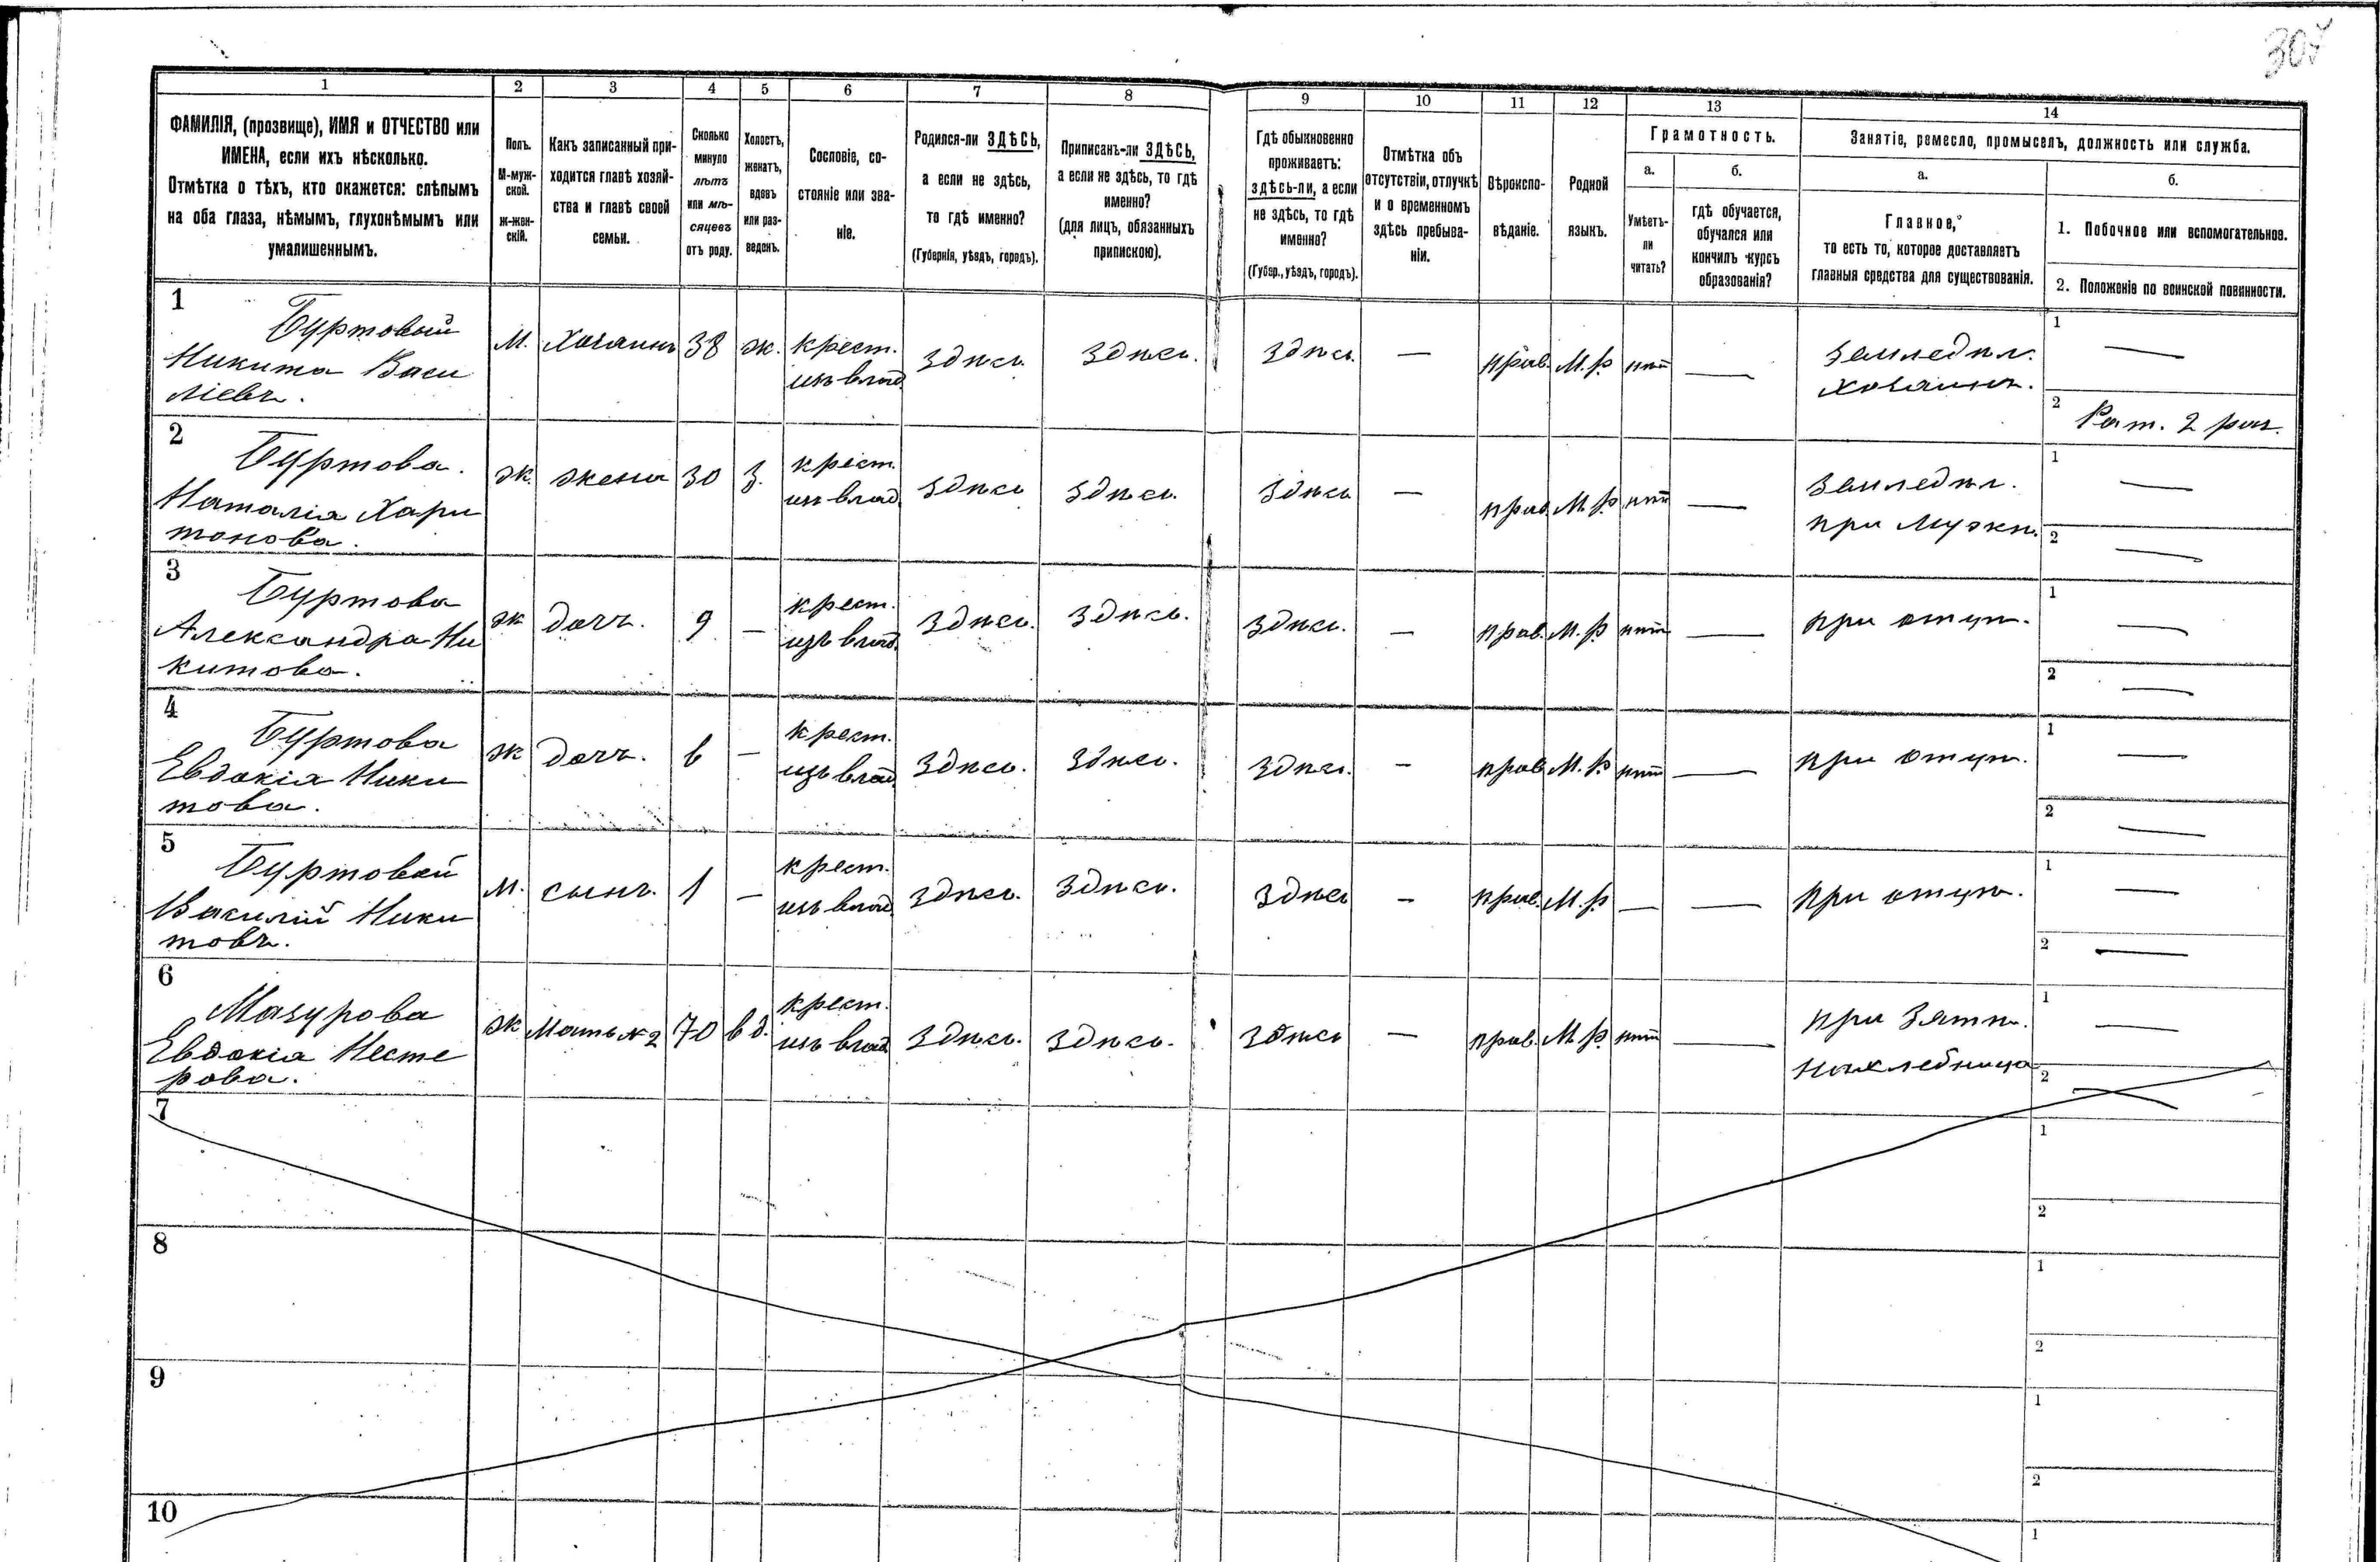 307
1 2 3 4 5 6 7 8 9 10 11 12 13 14
ФАМИЛІЯ, (прозвище), ИМЯ и ОТЧЕСТВО или
ИМЕНА, если ихъ нѣсколько.
Отмѣтка о тѣхъ, кто окажется: слѣпымъ
на оба глаза, нѣмымъ, глухонѣмымъ или
умалишеннымъ.
Полъ.
М-муж-
ской.
Ж-жен-
скій.
Какъ записанный при-
ходится главѣ хозяй-
ства и главѣ своей
семьи.
Сколько
минуло
лѣтъ
или мѣ-
сяцевъ
отъ роду.
Холостъ,
женатъ,
вдовъ
или раз-
веденъ.
Сословіе, со-
стояніе или зва-
ніе.
Родился-ли ЗДѢСЬ,
а если не здѣсь,
то гдѣ именно?
(Губернія, уѣздъ, городъ).
Приписанъ-ли ЗДѢСЬ,
а если не здѣсь, то гдѣ
именно?
(для лицъ, обязанныхъ
припискою).
Гдѣ обыкновенно
проживаетъ:
здѣсь-ли, а если
не здѣсь, то гдѣ
именно?
(Губер., уѣздъ, городъ).
Отмѣтка объ
отсутствіи, отлучкѣ
и о временномъ
здѣсь пребыва-
ніи.
Вѣроиспо-
вѣданіе.
Родной
языкъ.
Грамотность.
а.
Умѣетъ-
ли
читать?
б.
гдѣ обучается,
обучался или
кончилъ курсъ
образованія?
Занятіе, ремесло, промыселъ, должность или служба.
а.
Главное,
то есть то, которое доставляетъ
главныя средства для существованія.
б.
1. Побочное или вспомогательное.
2. Положеніе по воинской повинности.
1
Буртовый
Никита Васи
ліевъ.
М. Хозаинъ 38 ж. крест.
изъ влад. здѣсь. здѣсь. здѣсь. — прав. М.р. нѣтъ —
земледѣл.
хозаинъ.
1 —
2 Рат. 2 раз.
2
Буртова.
Наталія Хари
тонова.
ж. жена 30 з. крест.
изъ влад. здѣсь здѣсь. здѣсь — прав. М.р. нѣтъ —
земледѣл.
при мужѣ.
1 —
2 —
3
Буртова
Александра Ни
китова.
ж дочь. 9 — крест.
изъ влад. здѣсь. здѣсь. здѣсь. — прав. М.р. нѣтъ —
при отцѣ.
1 —
2 —
4
Буртова
Евдокія Ники
това.
ж дочь. 6 — крест.
изъ влад. здѣсь. здѣсь. здѣсь. — прав. М.р. нѣтъ —
при отцѣ.
1 —
2 —
5
Буртовой
Василій Ники
товъ.
М. сынъ. 1 — крест.
изъ влад. здѣсь. здѣсь. здѣсь — прав. М.р — —
при отцѣ.
1 —
2 —
6
Мазурова
Евдокія Несте
рова.
ж Мать № 2 70 вд. крест.
изъ влад. здѣсь. здѣсь. здѣсь — прав. М.р. нѣтъ —
при зятѣ.
нахлебница
1 —
2 —
7
1
2
8
1
2
9
1
2
10
1